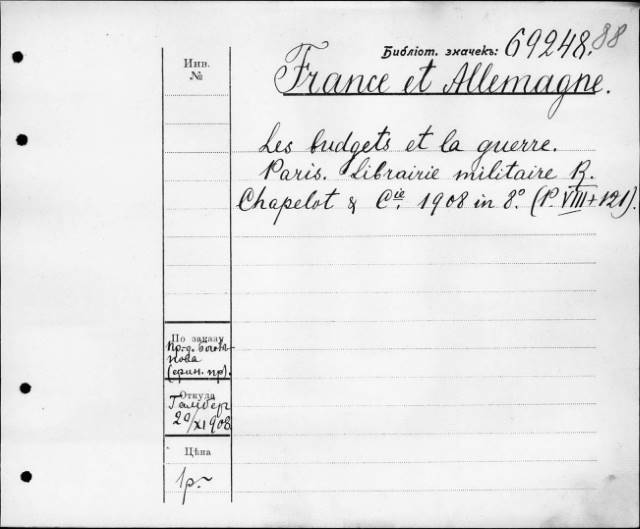 Библіот. значекъ: 69248. 88
France et Allemagne.
Les budgets et la guerre.
Paris. Librairie militaire R.
Chapelot & Cie. 1908 in 8º. (P. VIII+121).
Инв.
№
По заказу
нова
(фин. пр).
Откуда
20/XI 1908
Цѣна
1р.-